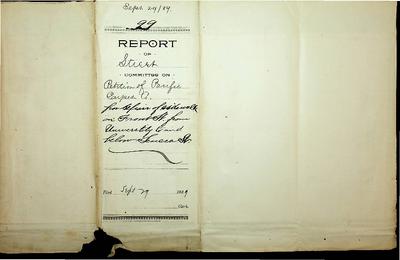 Sept. 29/89.
29
REPORT
OF
Street
COMMITTEE ON
Petition of Pacific
for repair of sidewalk
on Front St. from
University and
below Seneca St.
Filed Sept 29 1889
Clerk.